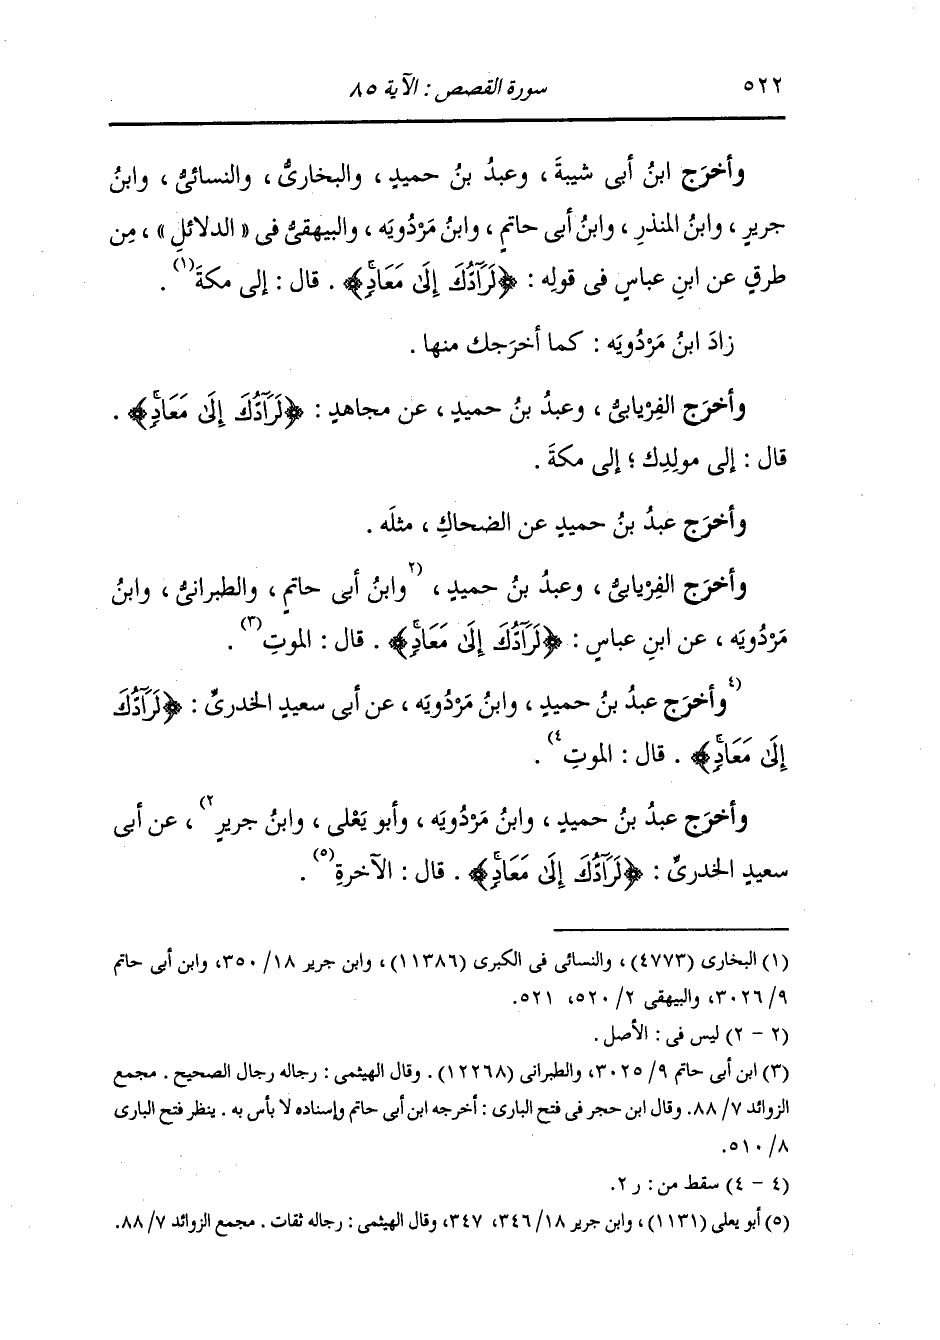 ٥٢٢
سورة القصص : الآية ٨٥
وأخرَج ابنُ أبى شيبةَ ، وعبدُ بنُ حميدٍ ، والبخارىُّ ، والنسائىُّ ، وابنُ
جريرٍ ، وابنُ المنذرِ ، وابنُ أبى حاتمٍ ، وابنُ مَرْدُويَه ، والبيهقىُّ فى « الدلائلِ » ، مِن
طرقٍ عن ابنِ عباسٍ فى قولِه : ﴿لَرَآدُّكَ إِلَىٰ مَعَادٍۚ﴾ . قال : إلى مكةَ(١) .
زادَ ابنُ مَرْدُويَه : كما أخرَجك منها .
وأخرَج الفِرْيابىُّ ، وعبدُ بنُ حميدٍ ، عن مجاهدٍ : ﴿لَرَآدُّكَ إِلَىٰ مَعَادٍۚ﴾ .
قال : إلى مولِدِك ؛ إلى مكةَ .
وأخرَج عبدُ بنُ حميدٍ عن الضحاكِ ، مثلَه .
وأخرَج الفِرْيابىُّ ، وعبدُ بنُ حميدٍ ، (٢وابنُ أبى حاتمٍ ، والطبرانىُّ ، وابنُ
مَرْدُويَه ، عن ابنِ عباسٍ : ﴿لَرَآدُّكَ إِلَىٰ مَعَادٍۚ﴾ . قال : الموتِ(٣) .
(٤وأخرَج عبدُ بنُ حميدٍ ، وابنُ مَرْدُويَه ، عن أبى سعيدٍ الخدرىِّ : ﴿لَرَآدُّكَ
إِلَىٰ مَعَادٍۚ﴾ . قال : الموتِ٤) .
وأخرَج عبدُ بنُ حميدٍ ، وابنُ مَرْدُويَه ، وأبو يَعْلى ، وابنُ جريرٍ٢) ، عن أبى
سعيدٍ الخدرىِّ : ﴿لَرَآدُّكَ إِلَىٰ مَعَادٍۚ﴾ . قال : الآخرةِ(٥) .
(١) البخارى (٤٧٧٣) ، والنسائى فى الكبرى (١١٣٨٦) ، وابن جرير ١٨/ ٣٥٠، وابن أبى حاتم
٩/ ٣٠٢٦، والبيهقى ٢/ ٥٢٠، ٥٢١.
(٢ - ٢) ليس فى : الأصل .
(٣) ابن أبى حاتم ٩/ ٣٠٢٥، والطبرانى (١٢٢٦٨) . وقال الهيثمى : رجاله رجال الصحيح . مجمع
الزوائد ٧/ ٨٨. وقال ابن حجر فى فتح البارى : أخرجه ابن أبى حاتم وإسناده لا بأس به . ينظر فتح البارى
٨/ ٥١٠.
(٤ - ٤) سقط من : ر ٢.
(٥) أبو يعلى (١١٣١) ، وابن جرير ١٨/ ٣٤٦، ٣٤٧، وقال الهيثمى : رجاله ثقات . مجمع الزوائد ٧/ ٨٨.